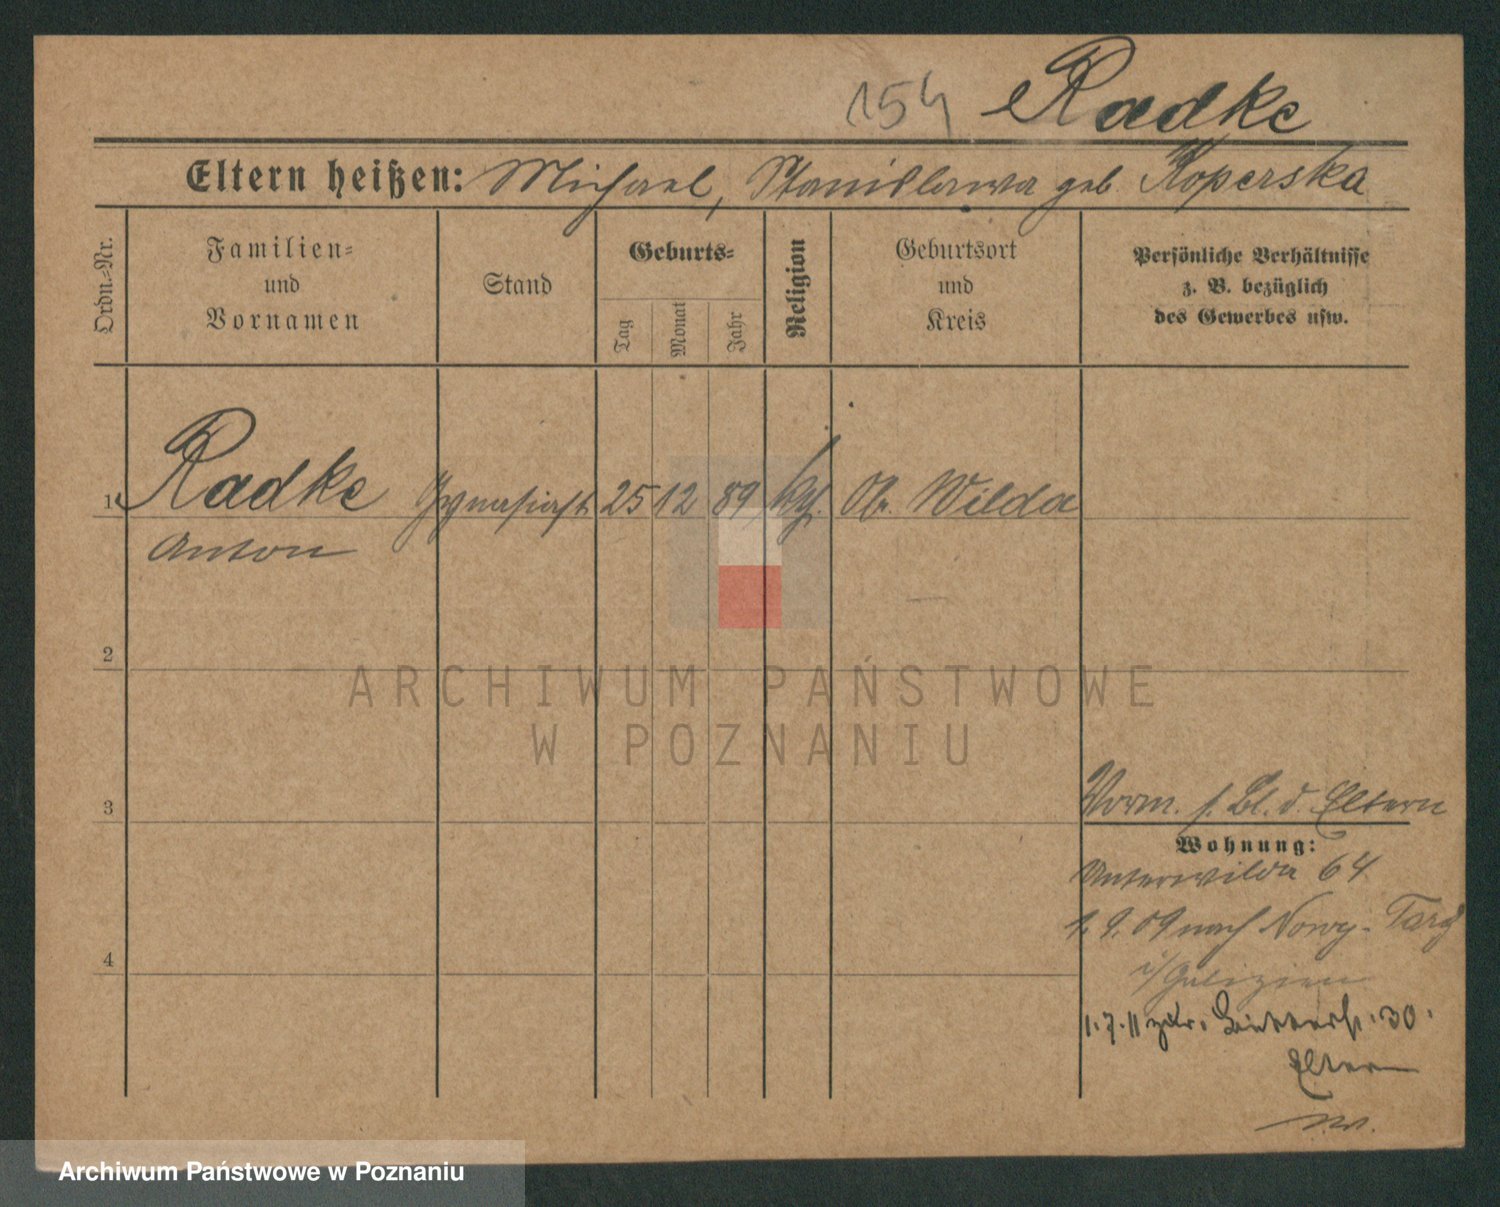 154 Radke
Eltern heißen: Michael, Stanislawa geb. Koperska
Ordn.-Nr.
Familien-
und
Vornamen
Stand
Geburts-
Tag
Monat
Jahr
Religion
Geburtsort
und
Kreis
Persönliche Verhältnisse
z. B. bezüglich
des Gewerbes usw.
1 Radke Gymnasiast 25 12 89 kth. Ob. Wilda
Anton
2
3
Vorm. s. Bl. d. Eltern
Wohnung:
Unterwilda 64
1. 9. 09 nach Nowy-Targ
i/Galizien
4
1.7.11 zur. 30.
Eltern
ARCHIWUM PAŃSTWOWE
W POZNANIU
Archiwum Państwowe w Poznaniu